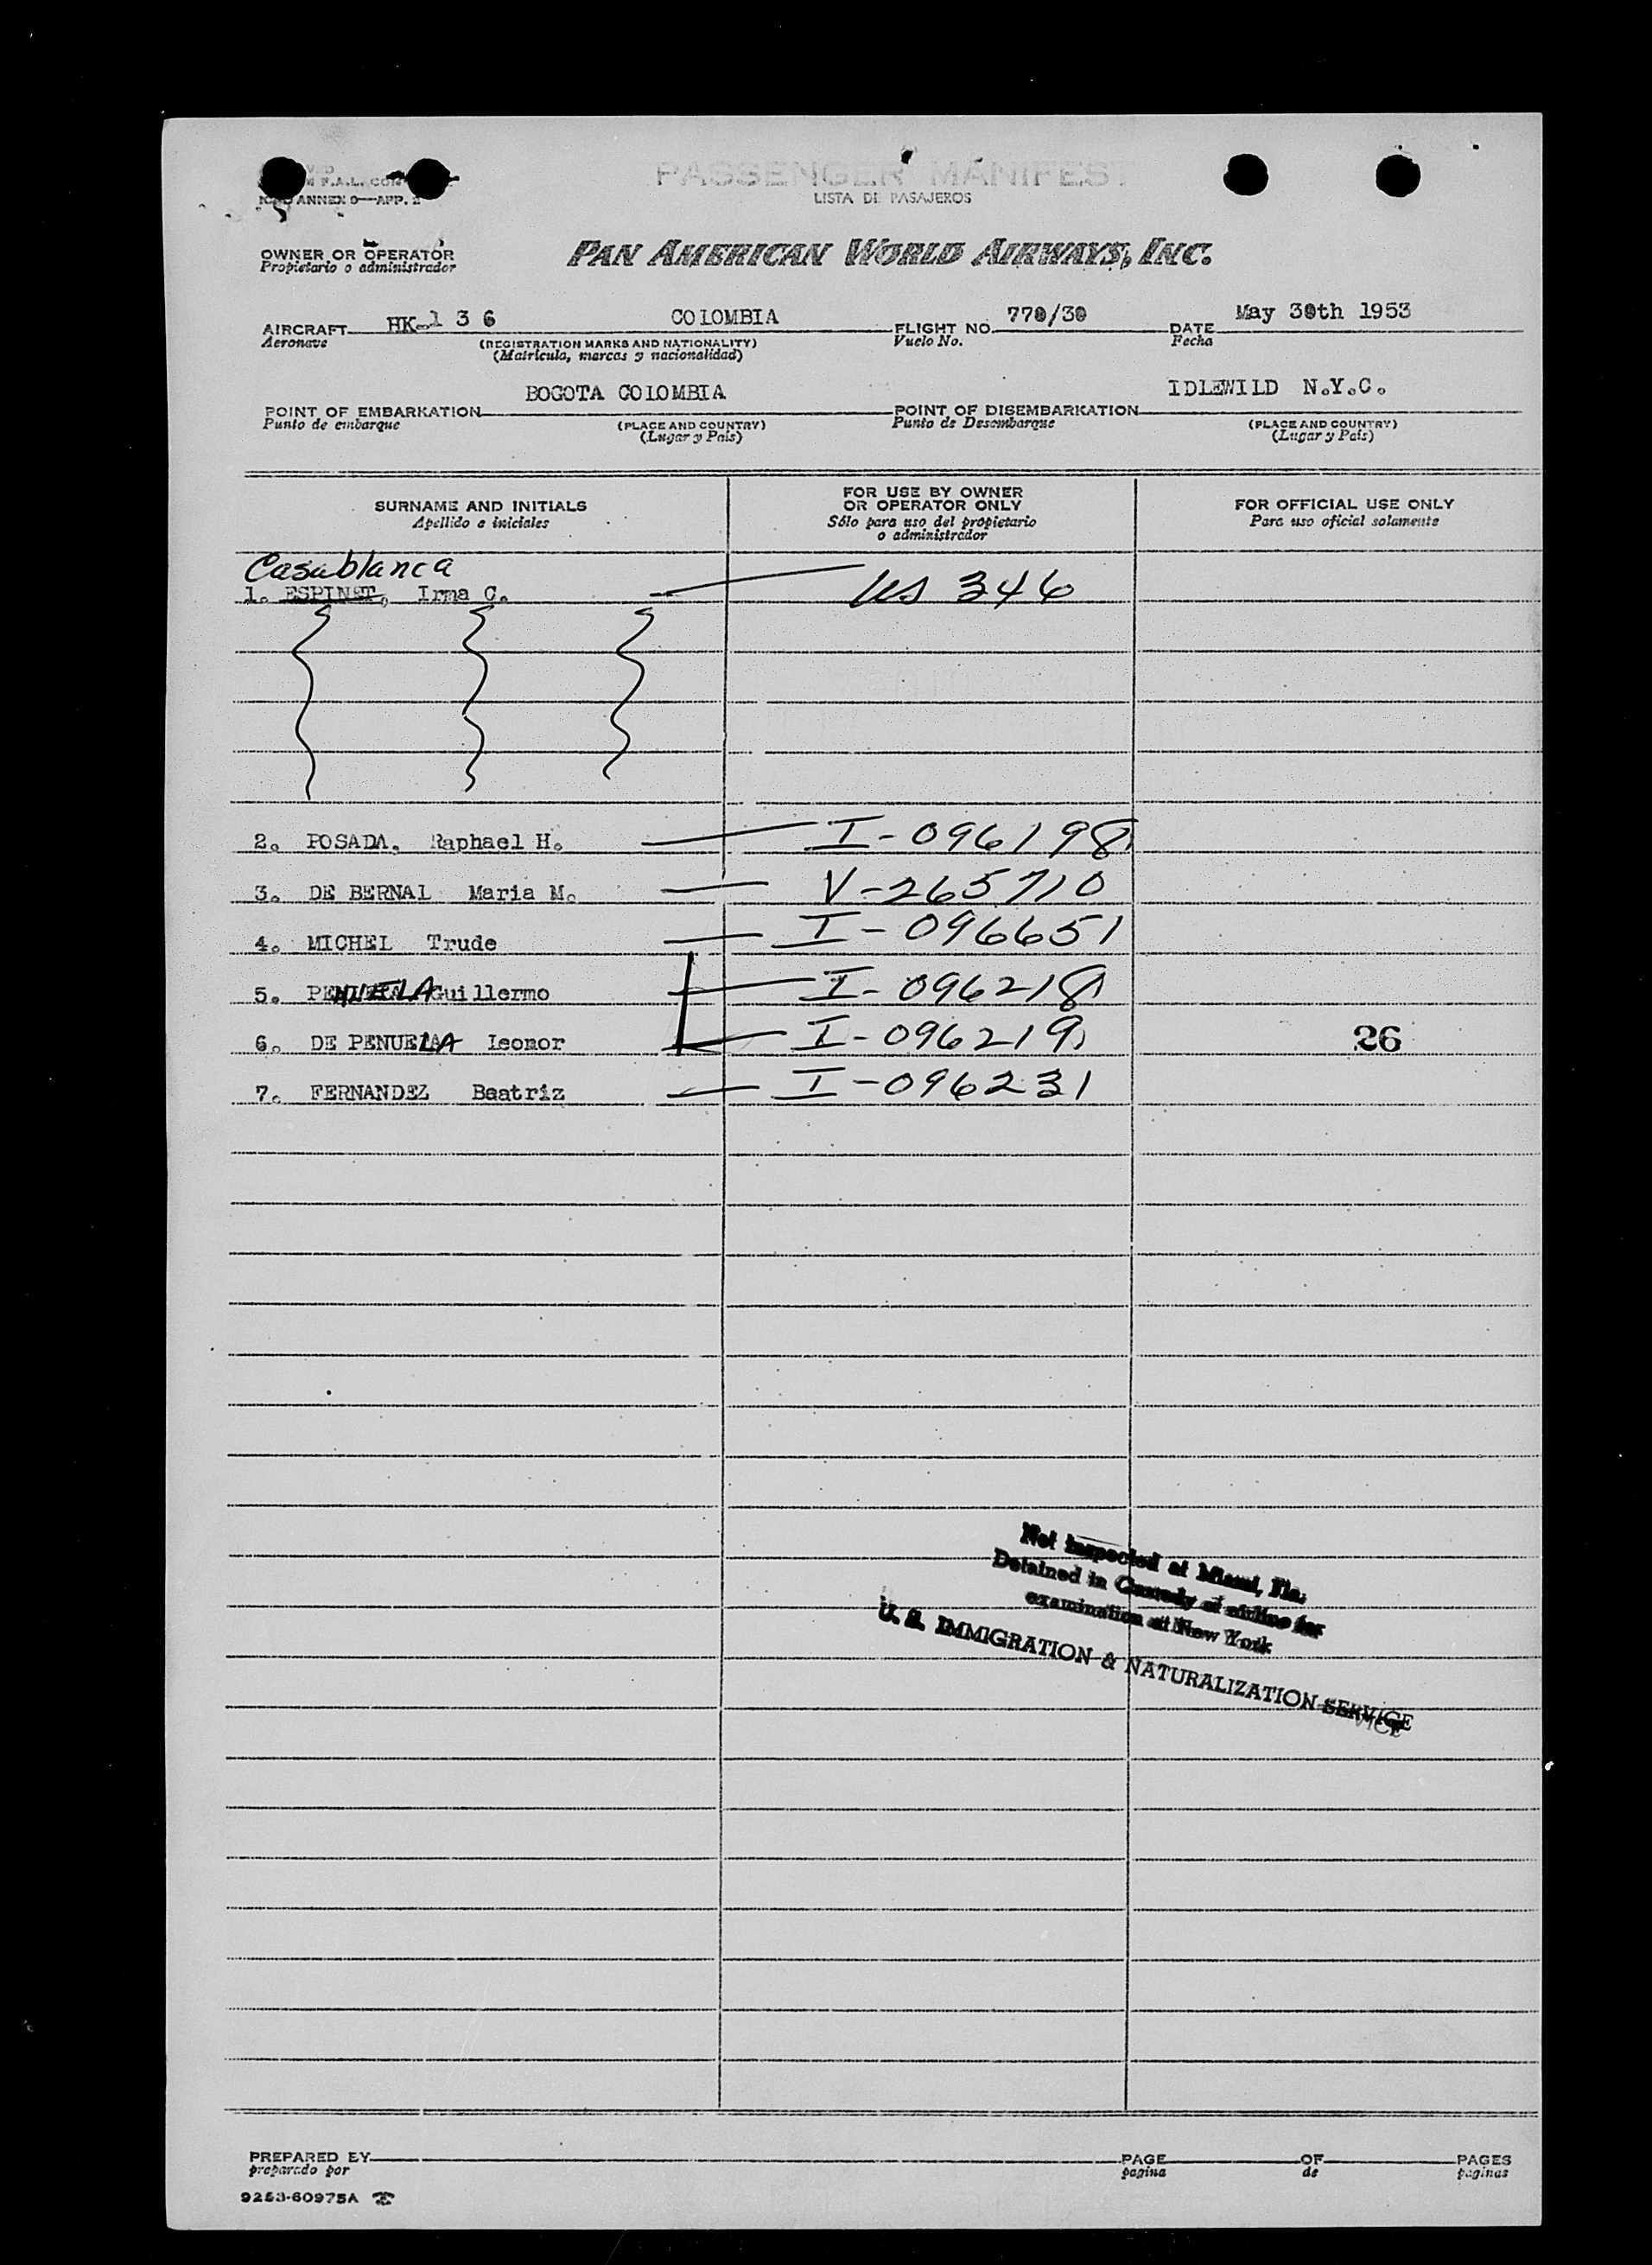 PASSENGER MANIFEST
F.A.L. CON
ANNEX 9—APP. 2
LISTA DE PASAJEROS
OWNER OR OPERATOR
Propietario o administrador
PAN AMERICAN WORLD AIRWAYS, INC.
AIRCRAFT HK-1 3 6 COLOMBIA FLIGHT NO. 770/30 DATE May 30th 1953
Aeronave (REGISTRATION MARKS AND NATIONALITY) Vuelo No. Fecha
(Matrícula, marcas y nacionalidad)
POINT OF EMBARKATION BOGOTA COLOMBIA POINT OF DISEMBARKATION IDLEWILD N.Y.C.
Punto de embarque (PLACE AND COUNTRY) Punto de Desembarque (PLACE AND COUNTRY)
(Lugar y País) (Lugar y País)
SURNAME AND INITIALS FOR USE BY OWNER OR OPERATOR ONLY FOR OFFICIAL USE ONLY
Apellido e iniciales Sólo para uso del propietario o administrador Para uso oficial solamente
Casablanca
1. ESPINET, Irma C. US 346
2. POSADA, Raphael H. I-096198
3. DE BERNAL Maria M. V-265710
4. MICHEL Trude I-096651
5. PENUELA Guillermo I-096218
6. DE PENUELA Leonor I-096219 26
7. FERNANDEZ Beatriz I-096231
Not inspected at Miami, Fla.
Detained in Custody of airline for
examination at New York
U. S. IMMIGRATION & NATURALIZATION SERVICE
PREPARED BY PAGE OF PAGES
preparado por pagina de paginas
9253-60975A